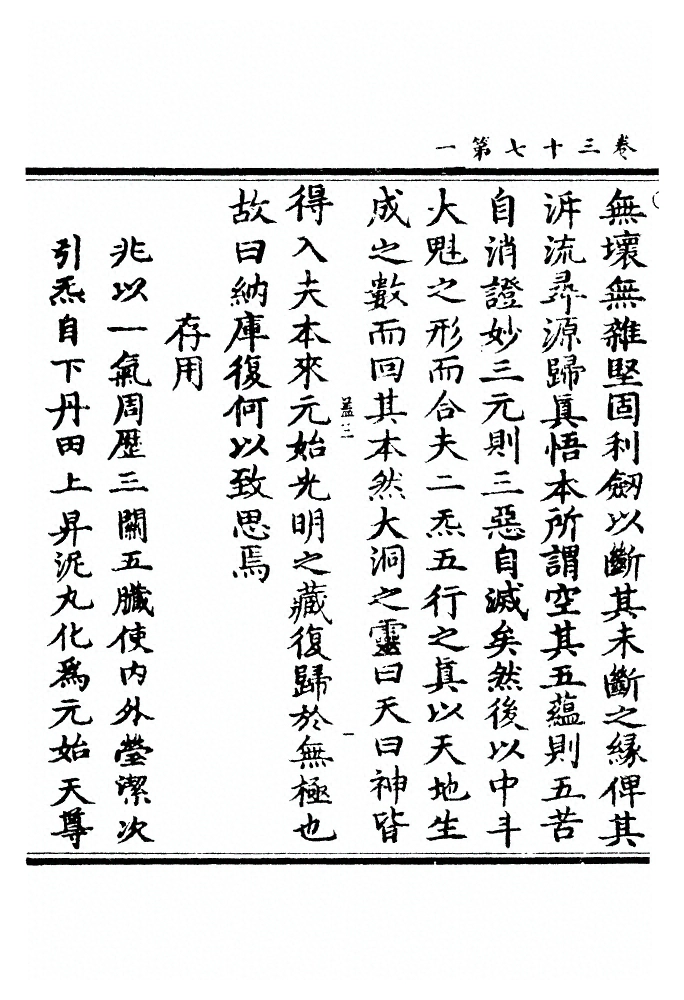 卷三十七第一
無壞無雜堅固利劒以斷其未斷之緣俾其
泝流尋源歸眞悟本所謂空其五蘊則五苦
自消證妙三元則三惡自滅矣然後以中斗
大魁之形而合夫二炁五行之眞以天地生
成之數而回其本然大洞之靈曰天曰神皆
蓋三
一
得入夫本來元始光明之藏復歸於無極也
故曰納庫復何以致思焉
存用
兆以一氣周歷三關五臟使內外瑩潔次
引炁自下丹田上昇泥丸化爲元始天尊